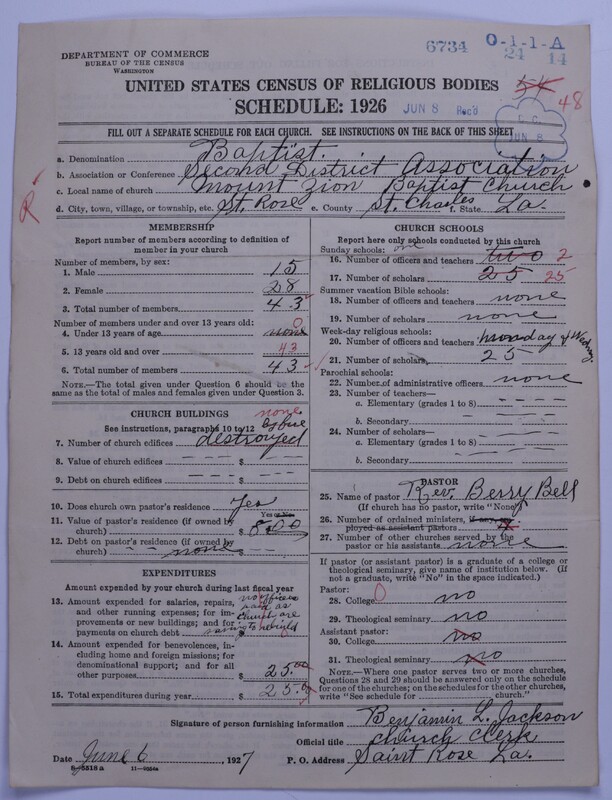 DEPARTMENT OF COMMERCE
BUREAU OF THE CENSUS
WASHINGTON
6734 O-1-1-A
24 14
UNITED STATES CENSUS OF RELIGIOUS BODIES
SCHEDULE: 1926
JUN 8 Rec'd
54 48
E.C.
JUN 8
FILL OUT A SEPARATE SCHEDULE FOR EACH CHURCH. SEE INSTRUCTIONS ON THE BACK OF THIS SHEET
a. Denomination Baptist.
b. Association or Conference Second District Association
c. Local name of church Mount Zion Baptist Church
d. City, town, village, or township, etc. St. Rose e. County St. Charles f. State La.
R
MEMBERSHIP
Report number of members according to definition of
member in your church
Number of members, by sex:
1. Male 15
2. Female 28
3. Total number of members 43
Number of members under and over 13 years old:
4. Under 13 years of age none 0
5. 13 years old and over 43
6. Total number of members 43
NOTE.—The total given under Question 6 should be the
same as the total of males and females given under Question 3.
CHURCH BUILDINGS
See instructions, paragraphs 10 to 12
none
by fire
7. Number of church edifices destroyed
8. Value of church edifices $
9. Debt on church edifices $
10. Does church own pastor's residence Yes
Yes or No
11. Value of pastor's residence (if owned by
church) $ 800
12. Debt on pastor's residence (if owned by
church) none $
EXPENDITURES
Amount expended by your church during last fiscal year
13. Amount expended for salaries, repairs,
and other running expenses; for im-
provements or new buildings; and for
payments on church debt
no officers
paid as
church are
saving to rebuild
14. Amount expended for benevolences, in-
cluding home and foreign missions; for
denominational support; and for all
other purposes $ 25.00
15. Total expenditures during year $ 25.00
CHURCH SCHOOLS
Report here only schools conducted by this church
Sunday schools: one
16. Number of officers and teachers two 2
17. Number of scholars 25 25
Summer vacation Bible schools:
18. Number of officers and teachers none
19. Number of scholars none
Week-day religious schools:
20. Number of officers and teachers monday & Wednsy.
21. Number of scholars 25
Parochial schools:
22. Number of administrative officers none
23. Number of teachers—
a. Elementary (grades 1 to 8)
b. Secondary
24. Number of scholars—
a. Elementary (grades 1 to 8)
b. Secondary
PASTOR
25. Name of pastor Rev. Berry Bell
(If church has no pastor, write "None")
26. Number of ordained ministers, if any, em-
ployed as assistant pastors
27. Number of other churches served by the
pastor or his assistants none
If pastor (or assistant pastor) is a graduate of a college or
theological seminary, give name of institution below. (If
not a graduate, write "No" in the space indicated.)
Pastor:
28. College 0 no
29. Theological seminary no
Assistant pastor:
30. College no
31. Theological seminary no
NOTE.—Where one pastor serves two or more churches,
Questions 28 and 29 should be answered only on the schedule
for one of the churches; on the schedules for the other churches,
write "See schedule for church."
Signature of person furnishing information Benjamin L. Jackson
Official title Church Clerk
Date June 6, 1927 P. O. Address Saint Rose La.
8-5518 a 11-9264a